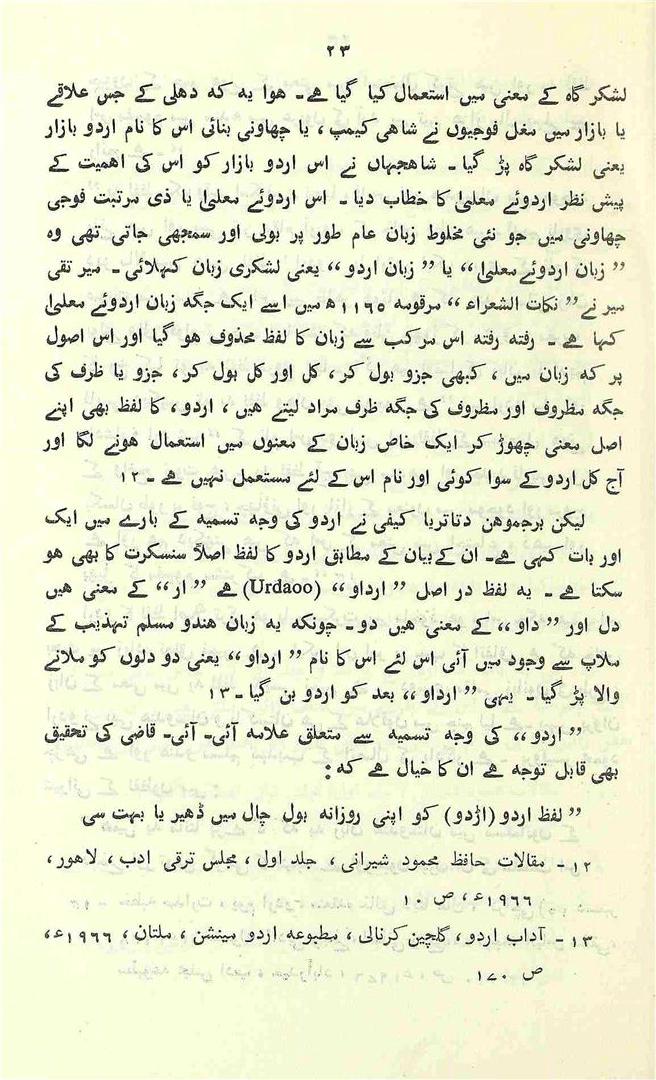 ۲۳
لشکر گاہ کے معنی میں استعمال کیا گیا ہے۔ ہوا یہ کہ دھلی کے جس علاقے
یا بازار میں مغل فوجیوں نے شاھی کیمپ، یا چھاونی بنائی اس کا نام اردو بازار
یعنی لشکر گاہ پڑ گیا۔ شاھجہاں نے اس اردو بازار کو اس کی اھمیت کے
پیش نظر اردوئے معلیٰ کا خطاب دیا۔ اس اردوئے معلیٰ یا ذی مرتبت فوجی
چھاونی میں جو نئی مخلوط زبان عام طور پر بولی اور سمجھی جاتی تھی وہ
”زبان اردوئے معلیٰ“ یا ”زبان اردو“ یعنی لشکری زبان کہلائی۔ میر تقی
میر نے ”نکات الشعراء“ مرقومہ ۱۱۶۵ھ میں اسے ایک جگہ زبان اردوئے معلیٰ
کہا ہے۔ رفتہ رفتہ اس مرکب سے زبان کا لفظ محذوف ھو گیا اور اس اصول
پر کہ زبان میں، کبھی جزو بول کر، کل اور کل بول کر، جزو یا ظرف کی
جگہ مظروف اور مظروف کی جگہ ظرف مراد لیتے ھیں، اردو، کا لفظ بھی اپنے
اصل معنی چھوڑ کر ایک خاص زبان کے معنوں میں استعمال ھونے لگا اور
آج کل اردو کے سوا کوئی اور نام اس کے لئے مستعمل نہیں ھے۔ ۱۲
لیکن برجموھن دتاتریا کیفی نے اردو کی وجہ تسمیہ کے بارے میں ایک
اور بات کہی ھے۔ ان کے بیان کے مطابق اردو کا لفظ اصلاً سنسکرت کا بھی ھو
سکتا ھے۔ یہ لفظ در اصل ”ارداو“ (Urdaoo) ھے ”ار“ کے معنی ھیں
دل اور ”داو،، کے معنی ھیں دو۔ چونکہ یہ زبان ھندو مسلم تہذیب کے
ملاپ سے وجود میں آئی اس لئے اس کا نام ”ارداو“ یعنی دو دلوں کو ملانے
والا پڑ گیا۔ یہی ”ارداو،، بعد کو اردو بن گیا۔ ۱۳
”اردو،، کی وجہ تسمیہ سے متعلق علامہ آئی۔ آئی۔ قاضی کی تحقیق
بھی قابل توجہ ھے ان کا خیال ھے کہ:
”لفظ اردو (اڑدو) کو اپنی روزانہ بول چال میں ڈھیر یا بہت سی
۱۲۔ مقالات حافظ محمود شیرانی، جلد اول، مجلس ترقی ادب، لاھور،
۱۹۶۶ء، ص ۱۰
۱۳۔ آداب اردو، گلچین کرنالی، مطبوعہ اردو مینشن، ملتان، ۱۹۶۶ء،
ص ۱۷۰